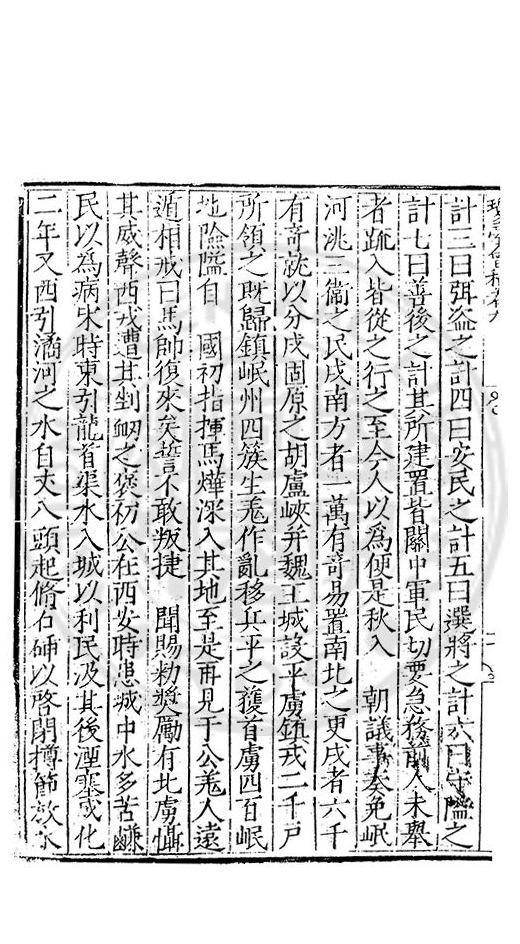 瓊臺會稿卷九
計三曰弭盗之計四曰安民之計五曰選將之計六曰守隘之
計七曰善後之計其所建置皆關中軍民切要急務前人未舉
者疏入皆從之行之至今人以為便是秋入 朝議事奏免岷
河洮三衛之民戍南方者一萬有奇易置南北之更戍者六千
有奇就以分戍固原之胡盧峽并魏王城設平虜鎮戎二千戶
所領之既歸鎮岷州四簇生羗作亂移兵平之獲首虜四百岷
地險隘自 國初指揮馬燁深入其地至是再見于公羗人遠
遁相戒曰馬帥復來矣誓不敢叛捷 聞賜勑奬勵有北虜懾
其威聲西戎遭其剉衂之褒初公在西安時患城中水多苦鹻
民以為病宋時東引龍首渠水入城以利民汲其後湮塞成化
二年又西引潏河之水自丈八頭起脩石閘以啓閉撙節放水